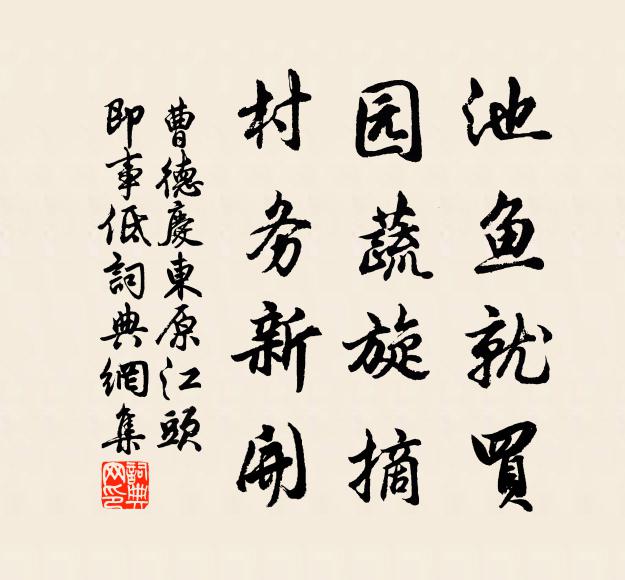 池鱼就買
园蔬旋摘
村务新開
曹德慶東原江頭
即事低詞典網集
詞典网印